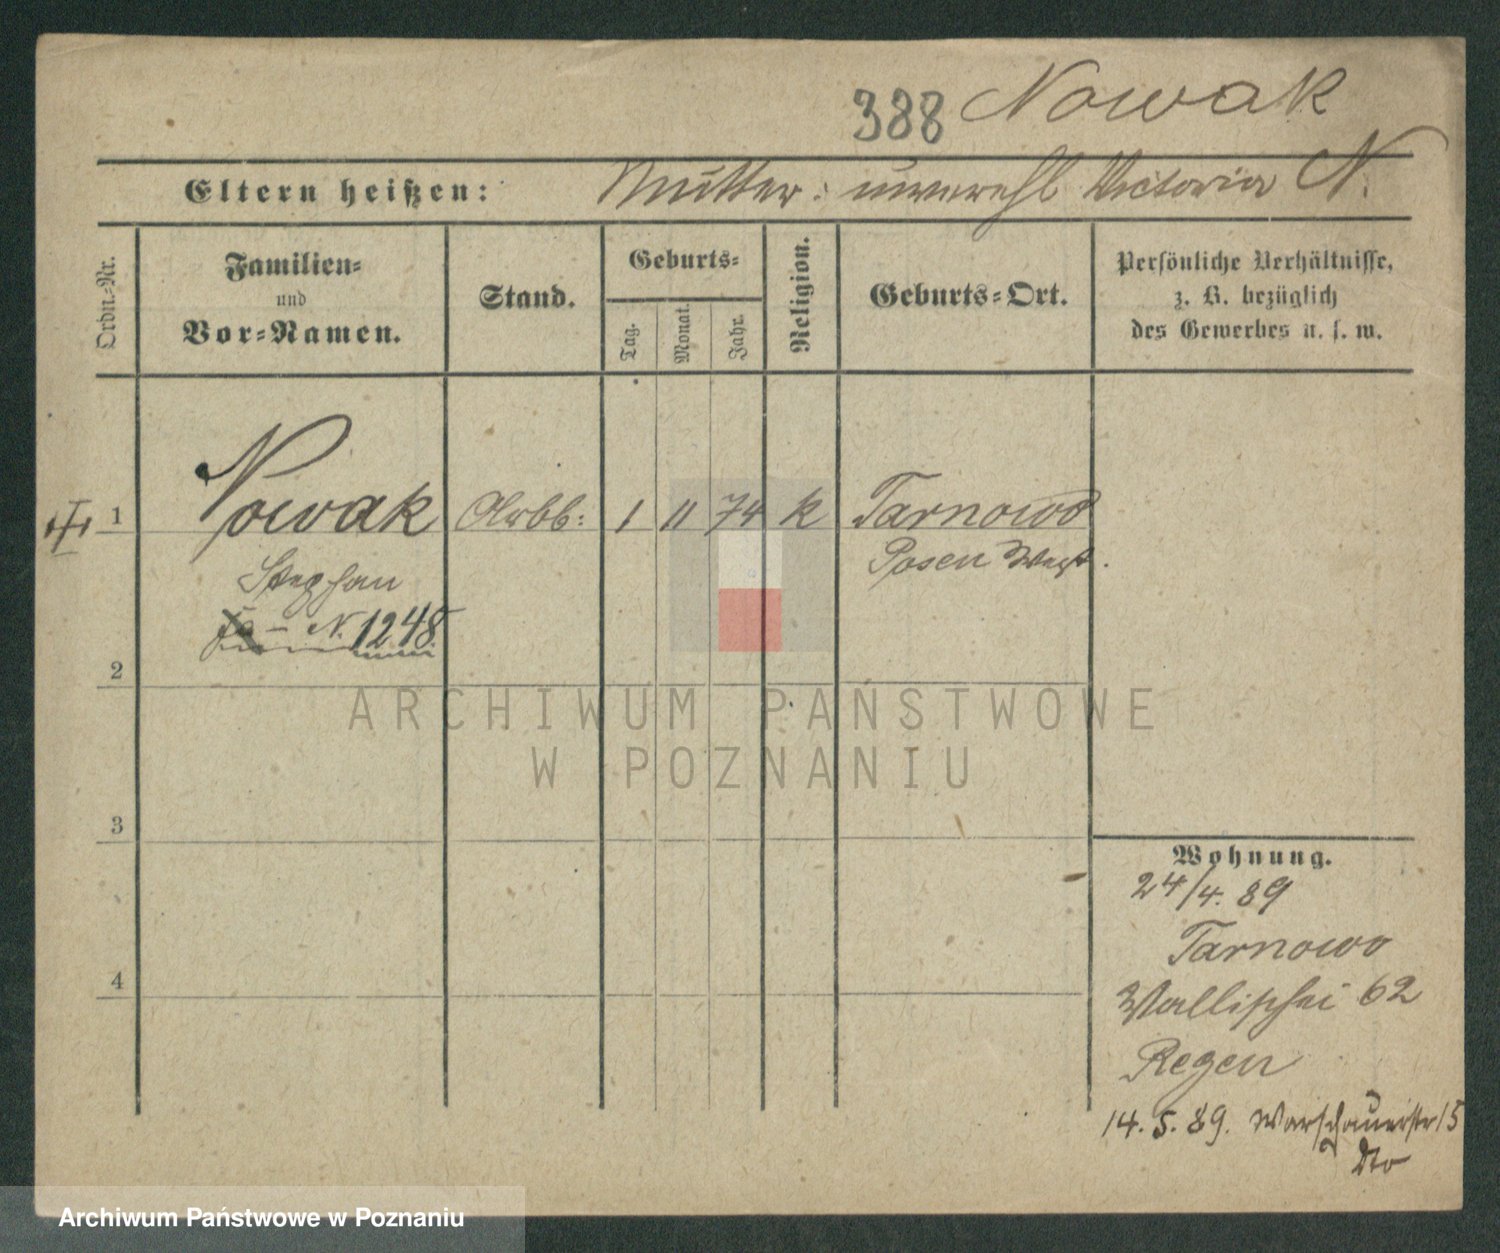 388 Nowak
Eltern heißen: Mutter: unverehl Victoria N.
Ordn.-Nr.
Familien-
und
Vor-Namen.
Stand.
Geburts-
Tag.
Monat.
Jahr.
Religion.
Geburts-Ort.
Persönliche Verhältnisse,
z. B. bezüglich
des Gewerbes u. s. w.
1 Nowak Arbb: 1 11 74 k Tarnowo
Stephan Posen West.
N. 1248
2
3
4
Wohnung.
24/4. 89
Tarnowo
Wallischei 62
Regen
14. 5. 89. Warschauerstr 15
dto
ARCHIWUM PAŃSTWOWE
W POZNANIU
Archiwum Państwowe w Poznaniu